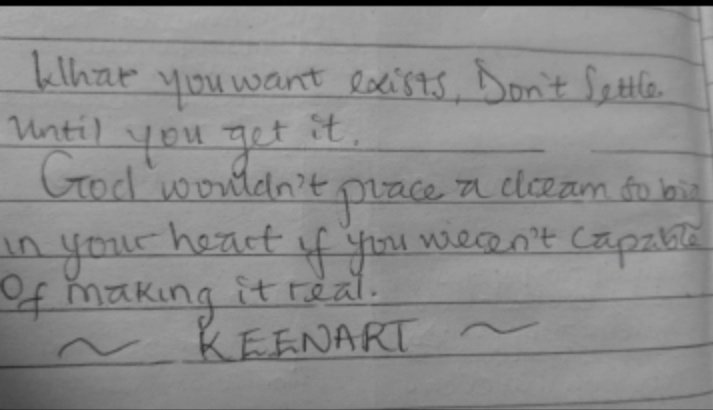 What you want exists, Don't Settle.
until you get it.
God wouldn't place a dream so big
in your heart if you weren't capable
Of making it real.
~ KEENART ~